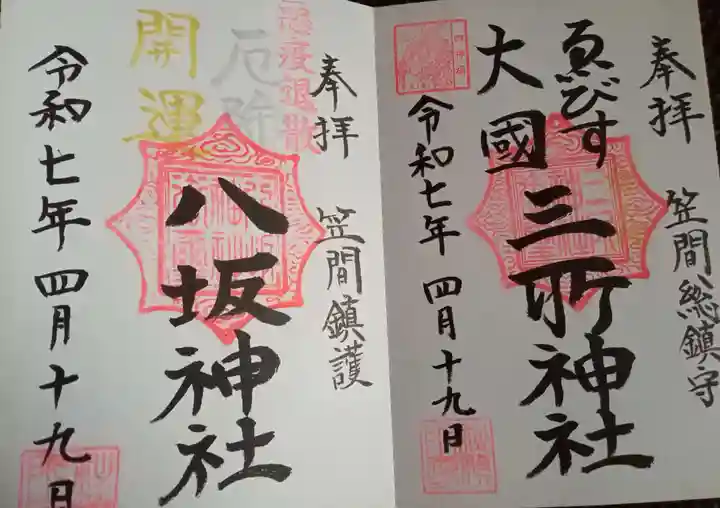 奉拝
笠間総鎮守
ゑびす
大國
三所神社
令和七年 四月十九日
奉拝
笠間鎮護
悪疫退散
厄除
開運
八坂神社
令和七年 四月十九日